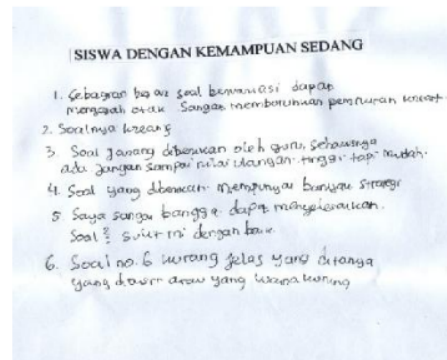 SISWA DENGAN KEMAMPUAN SEDANG
1. Sebagian besar soal bervariasi dapat
mengasah otak Sangat membutuhkan
2. Soalnya kreatif
3. Soal jarang diberikan oleh guru, seharusnya
ada jangan sampai nilai ulangan tinggi tapi mudah.
4. Soal yang diberikan mempunyai banyak strategi
5 Saya sangat bangga dapat menyelesaikan
Soal² sulit ini dengan baik
6. Soal no. 6 kurang jelas yang ditanya
yang atau yang warna kuning